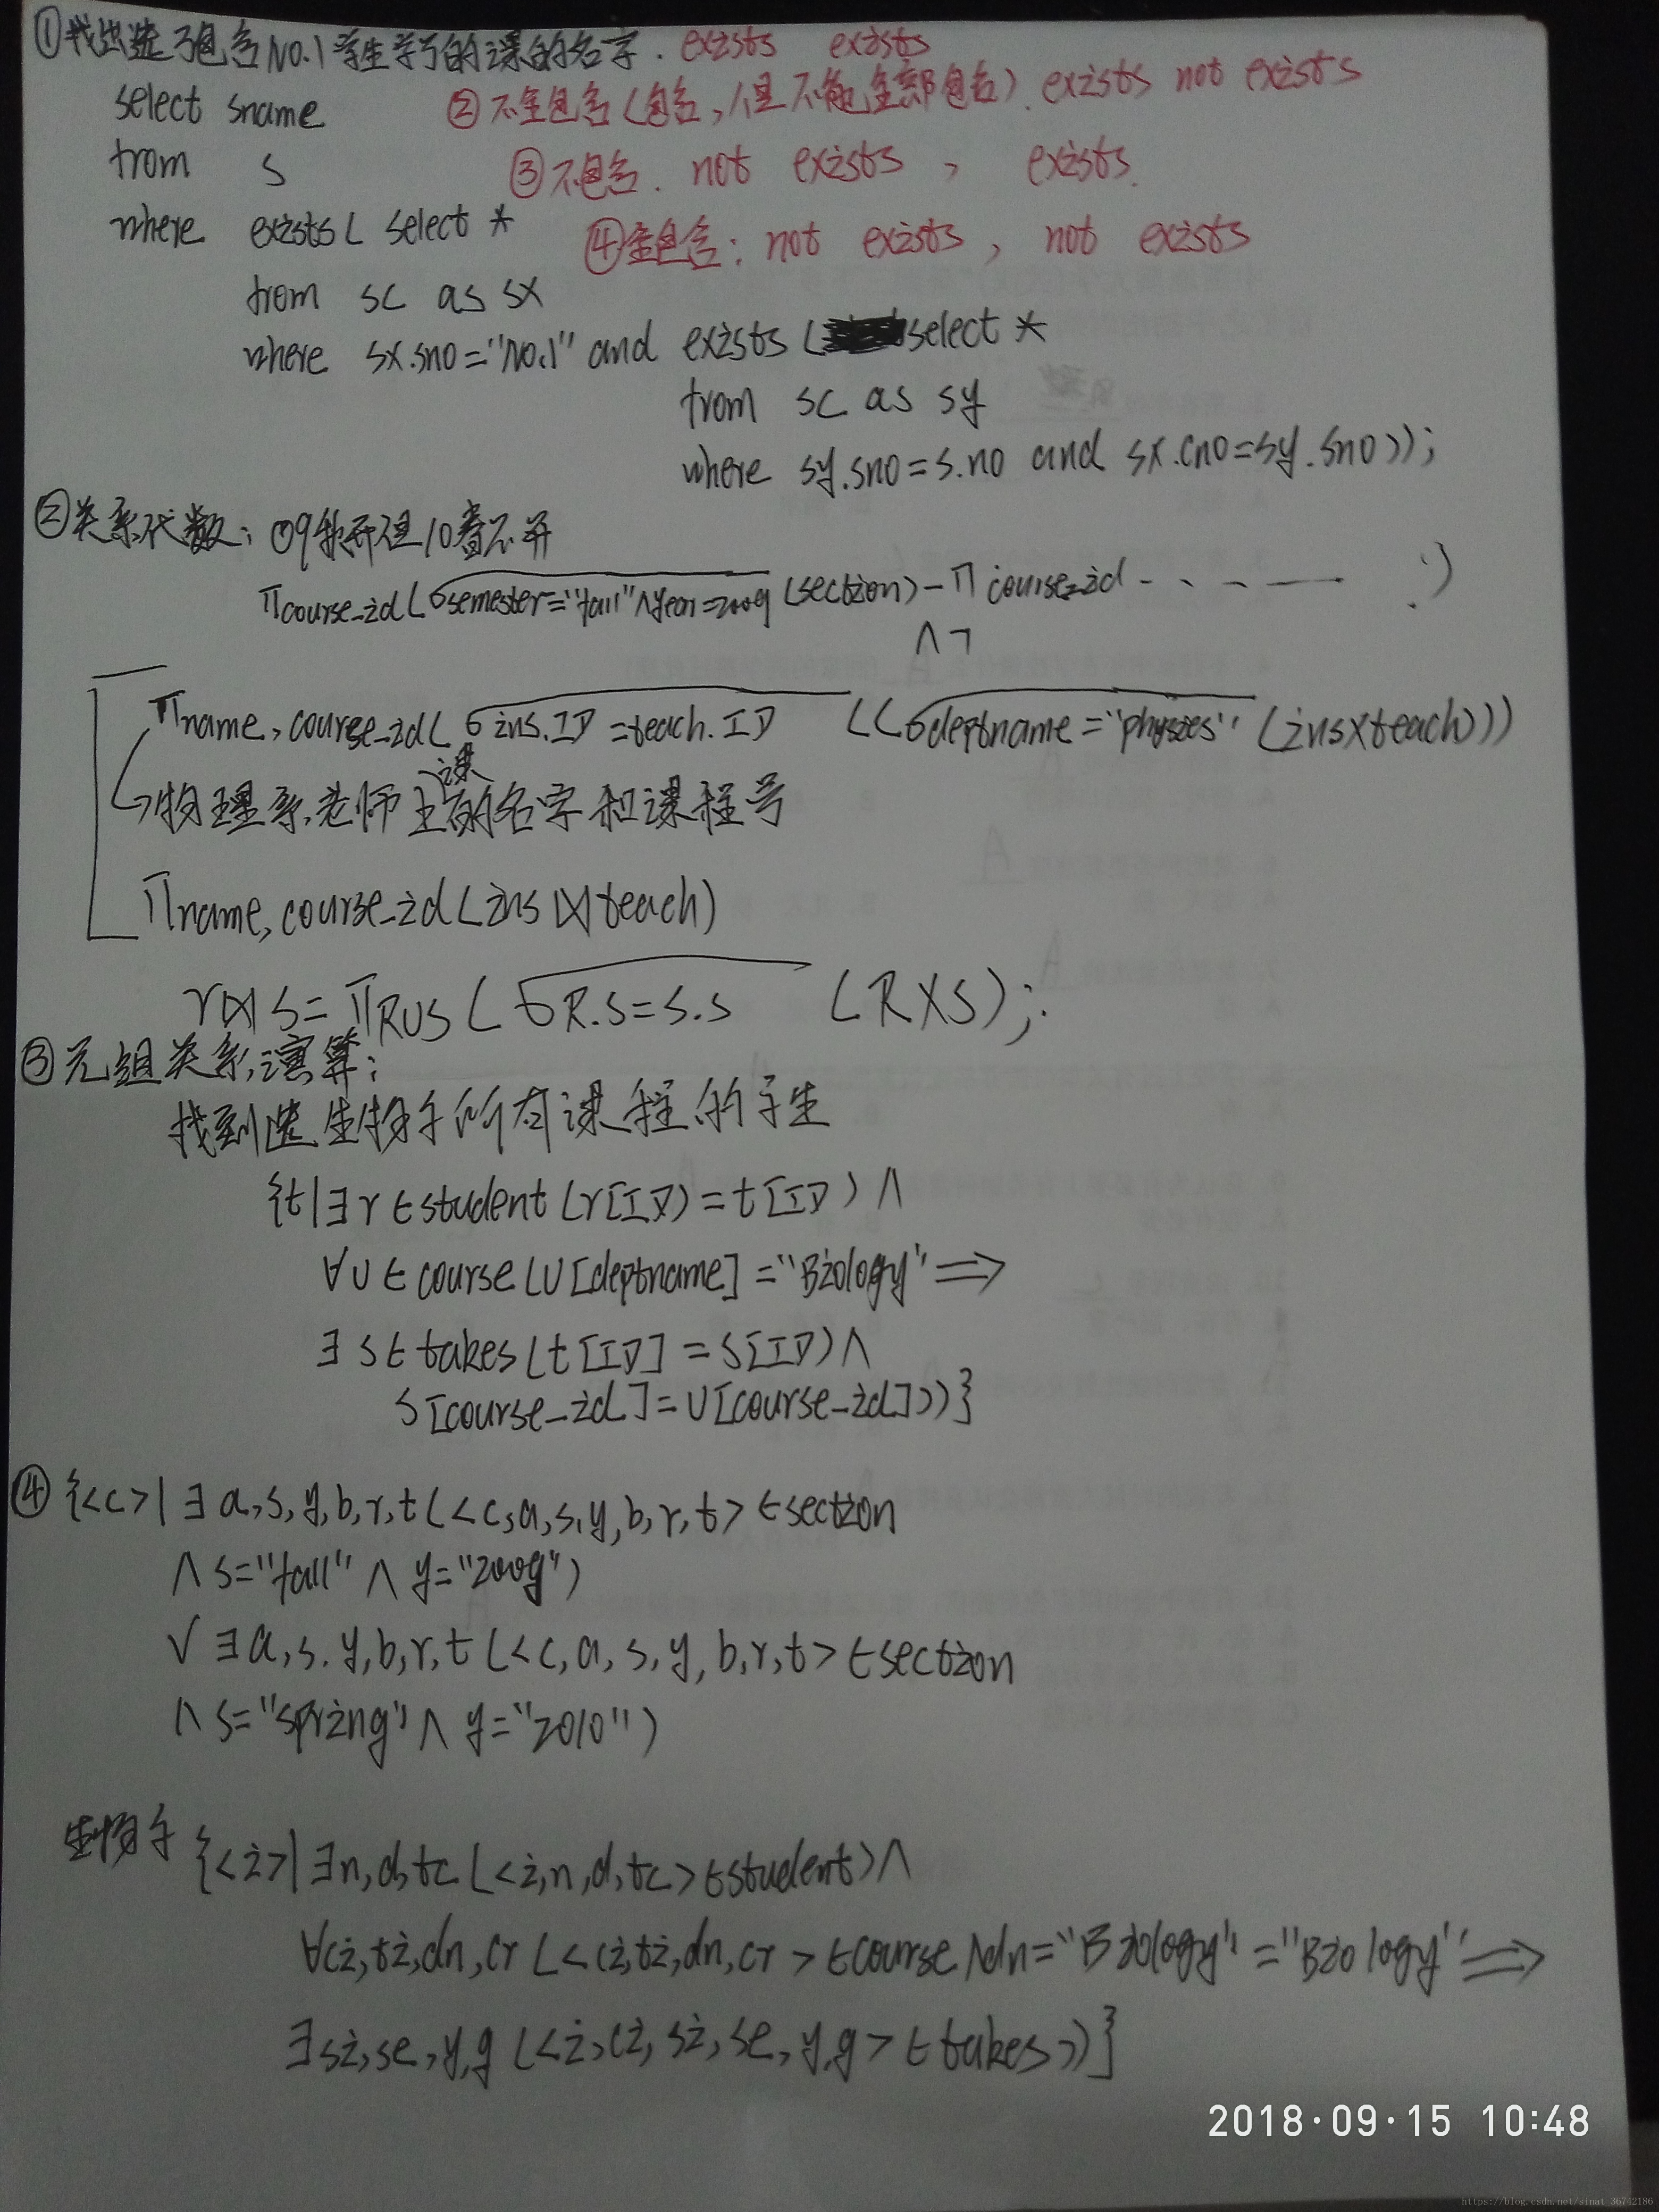 ①找出选了包含No.1学生学了的课的名字. exists exists
select sname ②不全包含(包含,但不能全部包含). exists not exists
from s ③不包含. not exists , exists.
where exists( select * ④全包含: not exists , not exists
from sc as sx
where sx.sno="No.1" and exists (select *
from sc as sy
where sy.sno=s.no and sx.cno=sy.sno));
②关系代数: 09秋开但10春不开
Πcourse_id(σsemester="fall"∧year=2009 (section)-Πcourse_id - - - — .)
∧¬
Πname,course_id(σins.ID=teach.ID ((σdeptname="physics" (ins×teach)))
课
物理系老师上的名字和课程号
Πname,course_id(ins⋈teach)
r⋈s=ΠR∪S(σR.S=S.S (R×S);
③元组关系演算:
找到选生物系所有课程的学生
{t|∃r∈student(r[ID)=t[ID)∧
∀u∈course(u[deptname]="Biology"⇒
∃s∈takes(t[ID]=s[ID)∧
s[course_id]=u[course_id]))}
④{<c>|∃a,s,y,b,r,t(<c,a,s,y,b,r,t>∈section
∧s="fall"∧y="2009")
∨∃a,s.y,b,r,t(<c,a,s,y,b,r,t>∈section
∧s="spring"∧y="2010")
生物系{<i>|∃n,d,tc(<i,n,d,tc>∈student)∧
∀ci,ti,dn,cr(<ci,ti,dn,cr>∈course∧dn="Biology"="Biology"⇒
∃si,se,y,g(<i,ci,si,se,y,g>∈takes))}
2018·09·15 10:48
https://blog.csdn.net/sinat_36742186